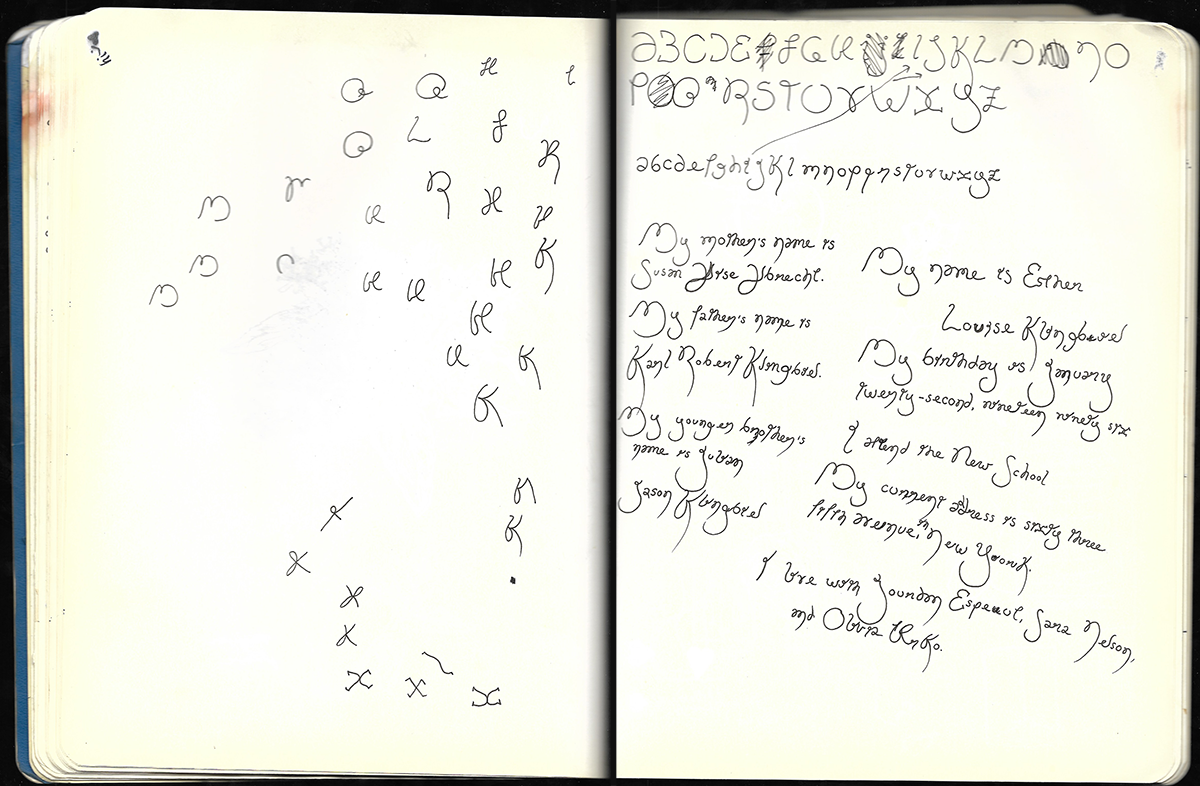 Q Q H
Q L f
K
m r u R H H
m u u H K
H
u K
K
K
K
X
X
X
X
X X X
A B C D E F G H I J K L M N O
P Q R S T U V W X Y Z
a b c d e f g h i j K l m n o p q r s t u v w x y z
My mother's name is
Susan Albrecht.
My father's name is
Karl Robert Klingbiel.
My younger brother's
name is Julian
Jason Klingbiel
My name is Esther
Louise Klingbiel
My birthday is January
twenty-second, nineteen ninety six
I attend the New School
My current address is sixty three
fifth avenue, in New York.
I live with Jourdan Sara Nelson,
and Olivia